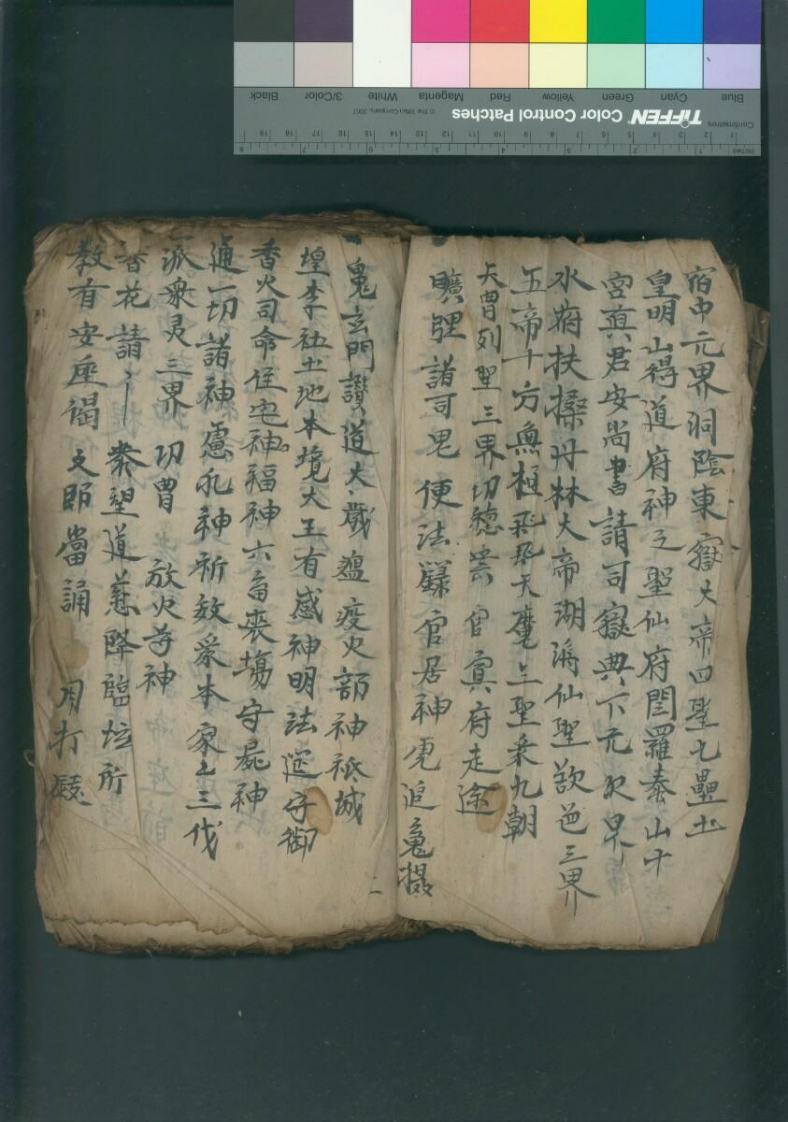 宿中元界洞陰東嶽大帝四聖九壘土
皇明山得道府神之聖仙府閻羅泰山十
宮真君安尚書請司嶽典下元水旱
水府扶桑丹林大帝湖澬仙聖歆邑三界
五帝十方無極飛飛天魔三聖来九朝
天曹列聖三界切揔雲宫寘府走途
曠諸司兒便法籙官居神虎追䰟攝
鬼玄門讃道大歲瘟疫火部神祇城
堭李社土地本境大王有感神明法筵守御
香火司命住宅神福神六畜丧塲守屍神
通一切諸神處礼神祈效蒙本家之三代
派衆灵三界功曹放火等神
香花請〻恭望道慈降臨坛所
教有安座偈文即當誦用打鼓
Blue Cyan Green Yellow Red Magenta White 3/Color Black
TIFFEN Color Control Patches
© The Tiffen Company, 2007
Centimetres
Inches